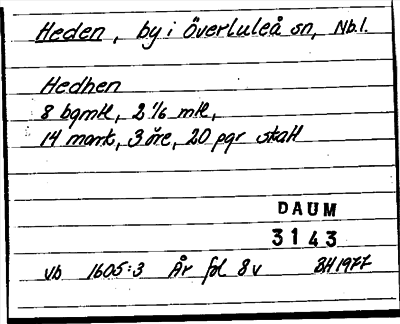 Heden, by i Överluleå sn, Nb.l.
Hedhen
8 bgmtl, 2 1/6 mtl,
14 mark, 3 öre, 20 pgr skatt
DAUM
3143
Vb 1605:3 År fol 8v BH 1977